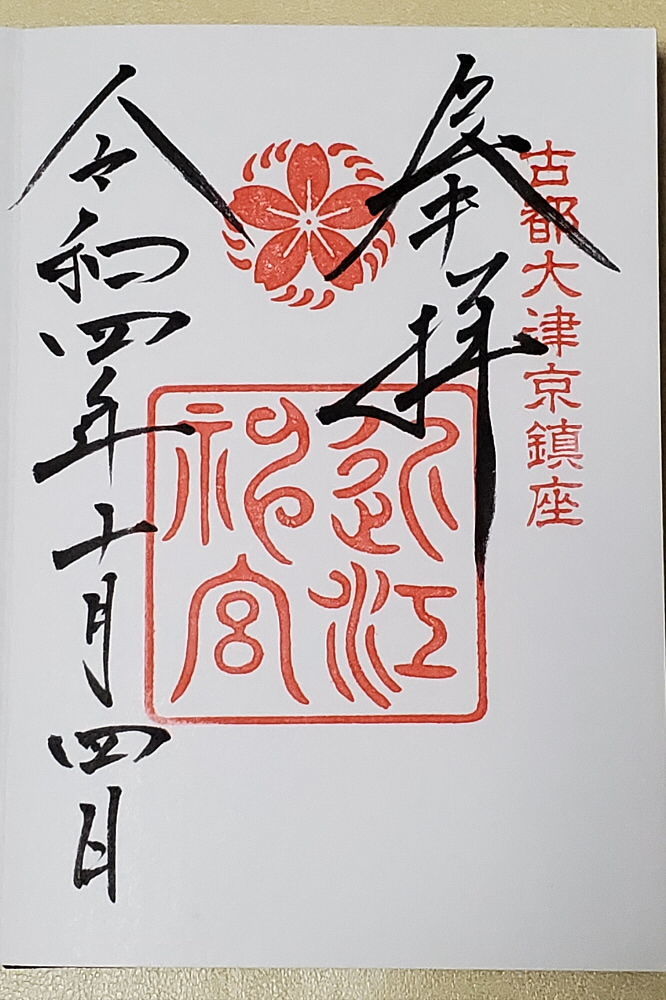 古都大津京鎮座
奉拝
近江
神宮
令和四年十月四日